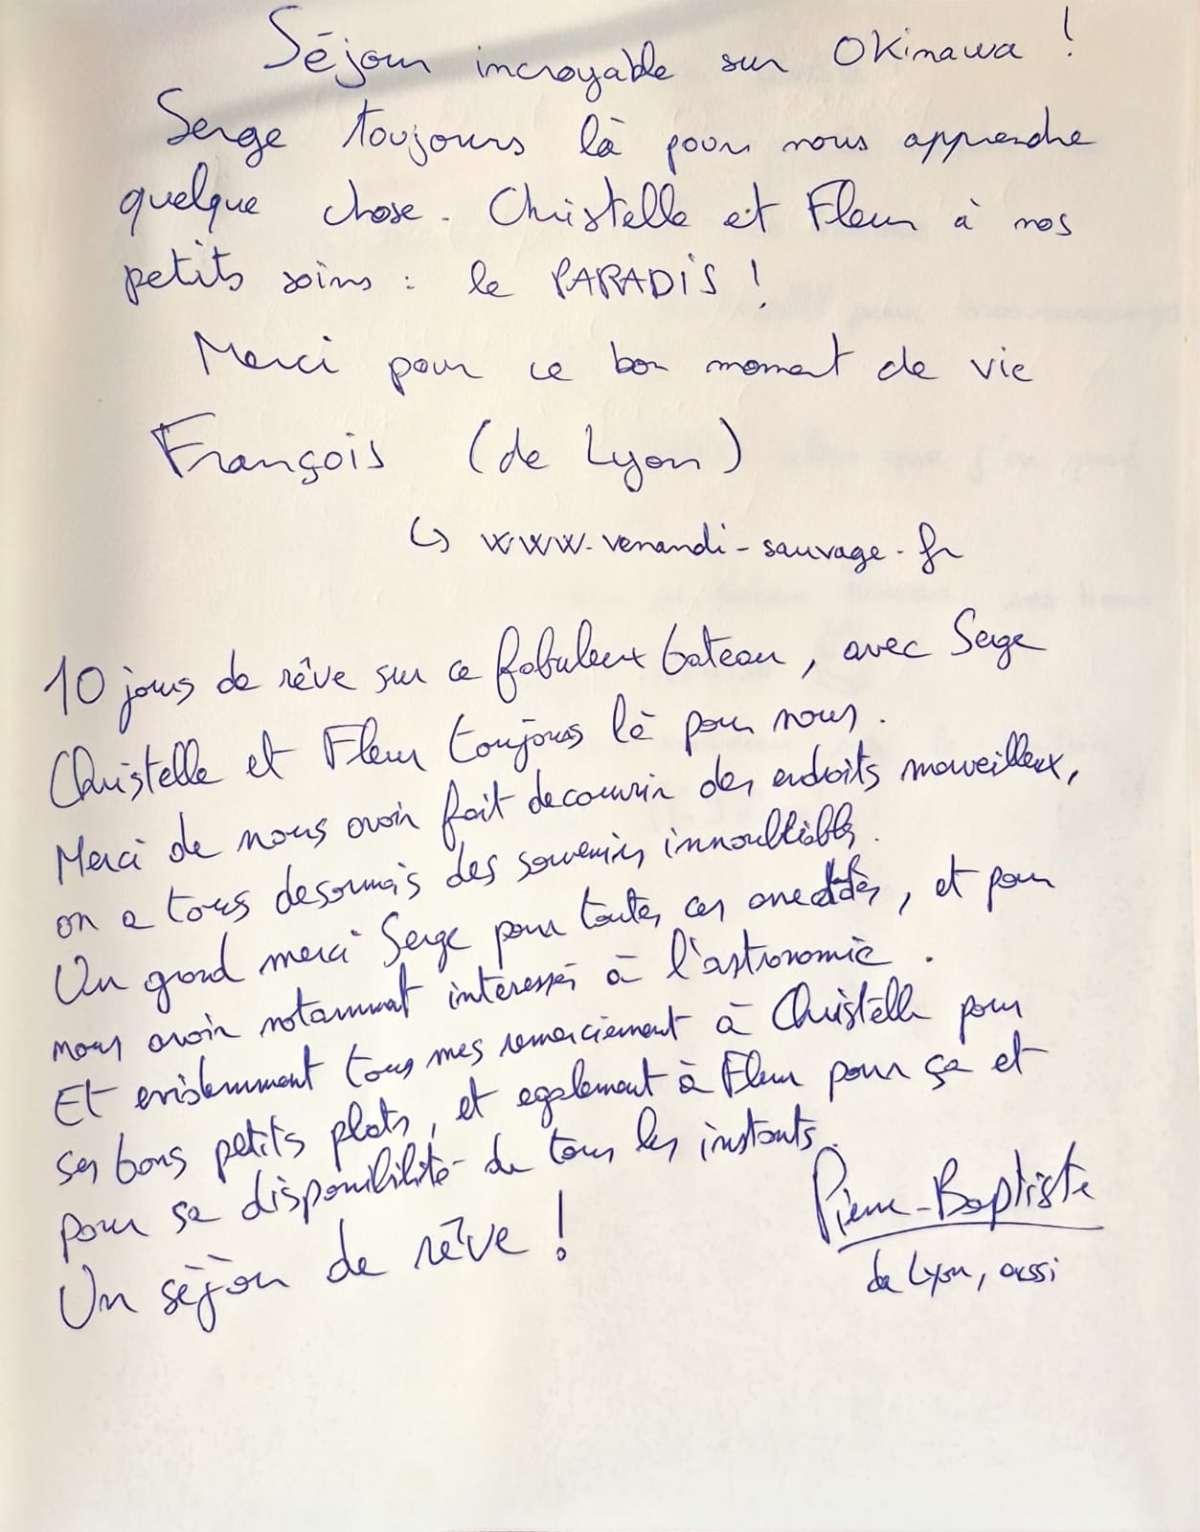 Séjour incroyable sur Okinawa !
Serge toujours là pour nous apprendre
quelque chose. Christelle et Fleur à nos
petits soins : le PARADIS !
Merci pour ce bon moment de vie
François (de Lyon)
↳ www.venandi-sauvage.fr
10 jours de rêve sur ce fabuleux bateau, avec Serge
Christelle et Fleur toujours là pour nous.
Merci de nous avoir fait decouvrir des endroits merveilleux,
on a tous desormais des souvenirs innoubliables.
Un grand merci Serge pour toutes ces anecdotes, et pour
nous avoir notamment interessés à l'astronomie.
Et evidemment tous mes remerciement à Christelle pour
ses bons petits plats, et egalement à Fleur pour ça et
pour sa disponibilité de tous les instants.
Un séjour de rêve !
Pierre-Baptiste
de Lyon, aussi